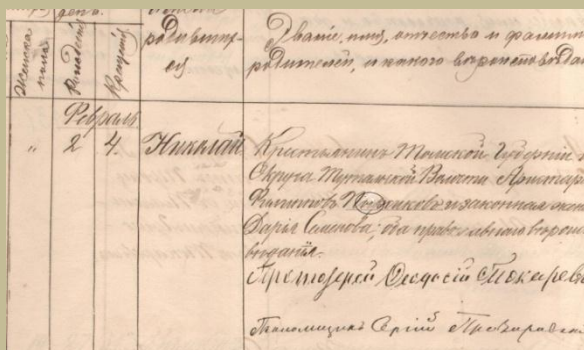 женска
пола
Рожденiя
Крещенiя
родивших-
ся
Званiе, имя, отчество и фамилiя
родителей, и какого вѣроисповѣданiя
Февраль
" 2 4. Николай
Крестьянинъ Томской Губернiи
Округа Тутальской Волости
Филиповъ и законная жена
Дарья Семенова, оба православнаго
вѣданiя.
Протоiерей Θеодосiй Токаревъ
Псаломщикъ Сергiй